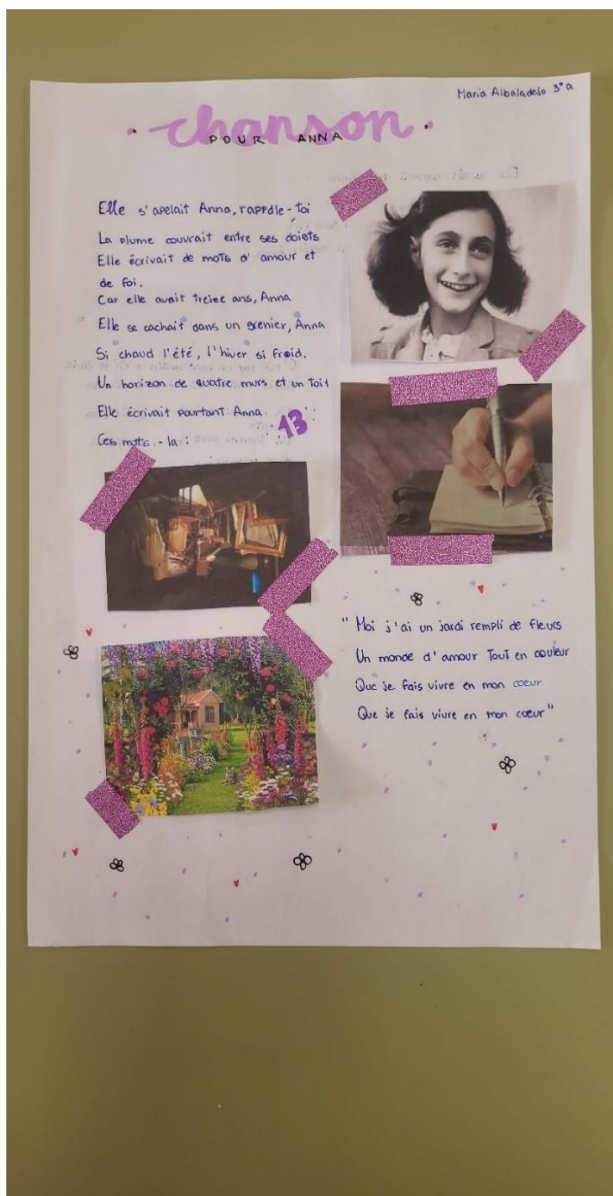 María Albaladejo 3ºa
chanson
POUR ANNA
Elle s'apelait Anna, rappelle-toi
La plume couvrait entre ses doists
Elle écrivait de mots d'amour et
de foi.
Car elle avait treiee ans, Anna
Elle se cachait dans un grenier, Anna
Si chaud l'été, l'hiver si froid.
Un horizon de quatre murs et un toit
Elle écrivait pourtant Anna
Ces mots-la :
13
"Moi j'ai un jardi rempli de fleurs
Un monde d'amour Tout en couleur
Que je fais vivre en mon coeur
Que je fais vivre en mon coeur"